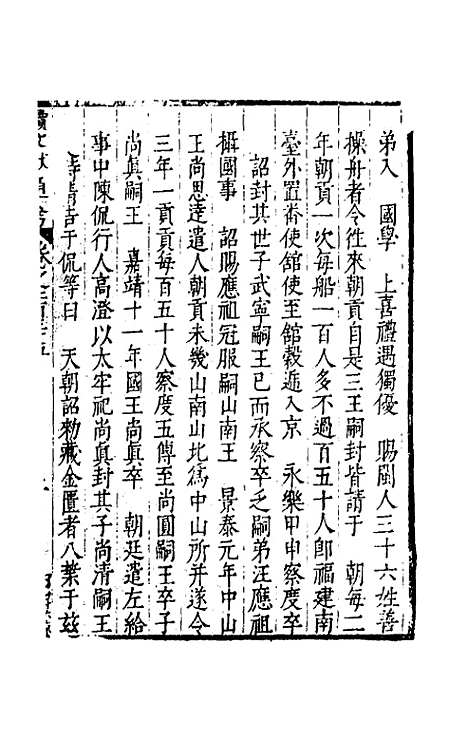 弟入 國學 上喜禮遇獨優 賜閩人三十六姓善
操舟者令徃來朝貢自是三王嗣封皆請于 朝每二
年朝貢一次每船一百人多不過百五十人卽福建南
臺外置番使舘使至舘穀遞入京 永樂甲申察度卒
詔封其世子武寧嗣王已而承察卒乏嗣弟汪應祖
攝國事 詔賜應祖冠服嗣山南王 景泰元年中山
王尚思達遣人朝貢未幾山南山北爲中山所并遂令
三年一貢貢每百五十人察度五傳至尚圓嗣王卒子
尚眞嗣王 嘉靖十一年國王尚眞卒 朝廷遣左給
事中陳侃行人高澄以太牢祀尚眞封其子尚清嗣王
清請吉于侃等曰 天朝詔勑藏金匱者八葉于玆
續文獻通考 卷之二百三十五